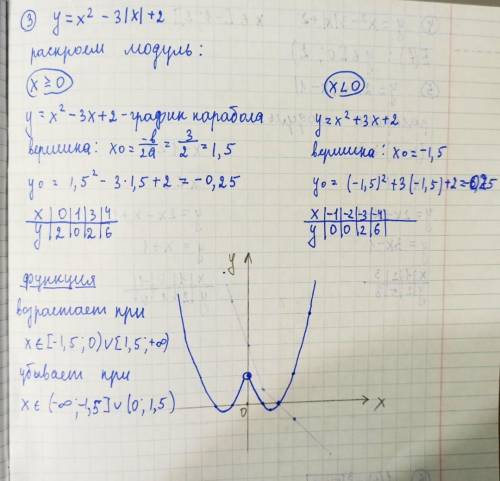 ③ y = x² - 3|x| + 2
раскроем модуль:
x ≥ 0
y = x² - 3x + 2 - график парабола
вершина: x₀ = -в/2a = 3/2 = 1,5
y₀ = 1,5² - 3·1,5 + 2 = -0,25
x | 0 | 1 | 3 | 4
y | 2 | 0 | 2 | 6
x < 0
y = x² + 3x + 2
вершина: x₀ = -1,5
y₀ = (-1,5)² + 3(-1,5) + 2 = -0,25
x | -1 | -2 | -3 | -4
y | 0 | 0 | 2 | 6
функция
возрастает при
x ∈ [-1,5; 0) ∪ [1,5; +∞)
убывает при
x ∈ (-∞; -1,5] ∪ (0; 1,5)
y
0
x